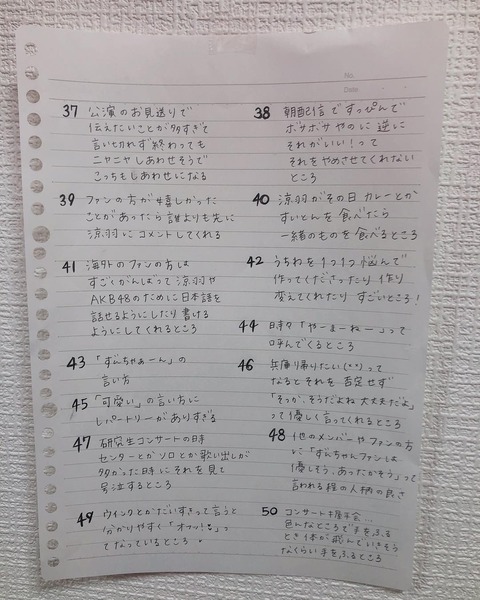 No.
Date
37 公演のお見送りで
伝えたいことが多すぎて
言い切れず終わっても
ニヤニヤしあわせそうで
こっちもしあわせになる
38 朝配信ですっぴんで
ボサボサやのに逆に
それがいい!って
それをやめさせてくれない
ところ
39 ファンの方が嬉しかった
ことがあったら誰よりも先に
涼羽にコメントしてくれる
40 涼羽がその日カレーとか
すいとんを食べたら
一緒のものを食べるところ
41 海外のファンの方は
すごくがんばって涼羽や
AKB48のために日本語を
話せるようにしたり書ける
ようにしてくれるところ
42 うちわを1つ1つ悩んで
作ってくださったり作り
変えてくれたりすごいところ!
43 「ずんちゃぁーん」の
言い方
44 時々「やーまーねー」って
呼んでくるところ
45 「可愛い」の言い方に
レパートリーがありすぎる
46 兵庫帰りたい(××)って
なるとそれを否定せず
「そっか、そうだよね大丈夫だよ」
って優しく言ってくれるところ
47 研究生コンサートの時
センターとかソロとか歌い出しが
多かった時にそれを見て
号泣するところ
48 他のメンバーやファンの方
に「ずんちゃんファンは
優しそう、あったかそう」って
言われる程の人柄の良さ
49 ウインクとかだいすきって言うと
分かりやすく「オフッ!!」っ
てなっているところ。
50 コンサート握手会…
色んなところで手をふる
とき体が飛んでいきそう
なくらい手をふるところ